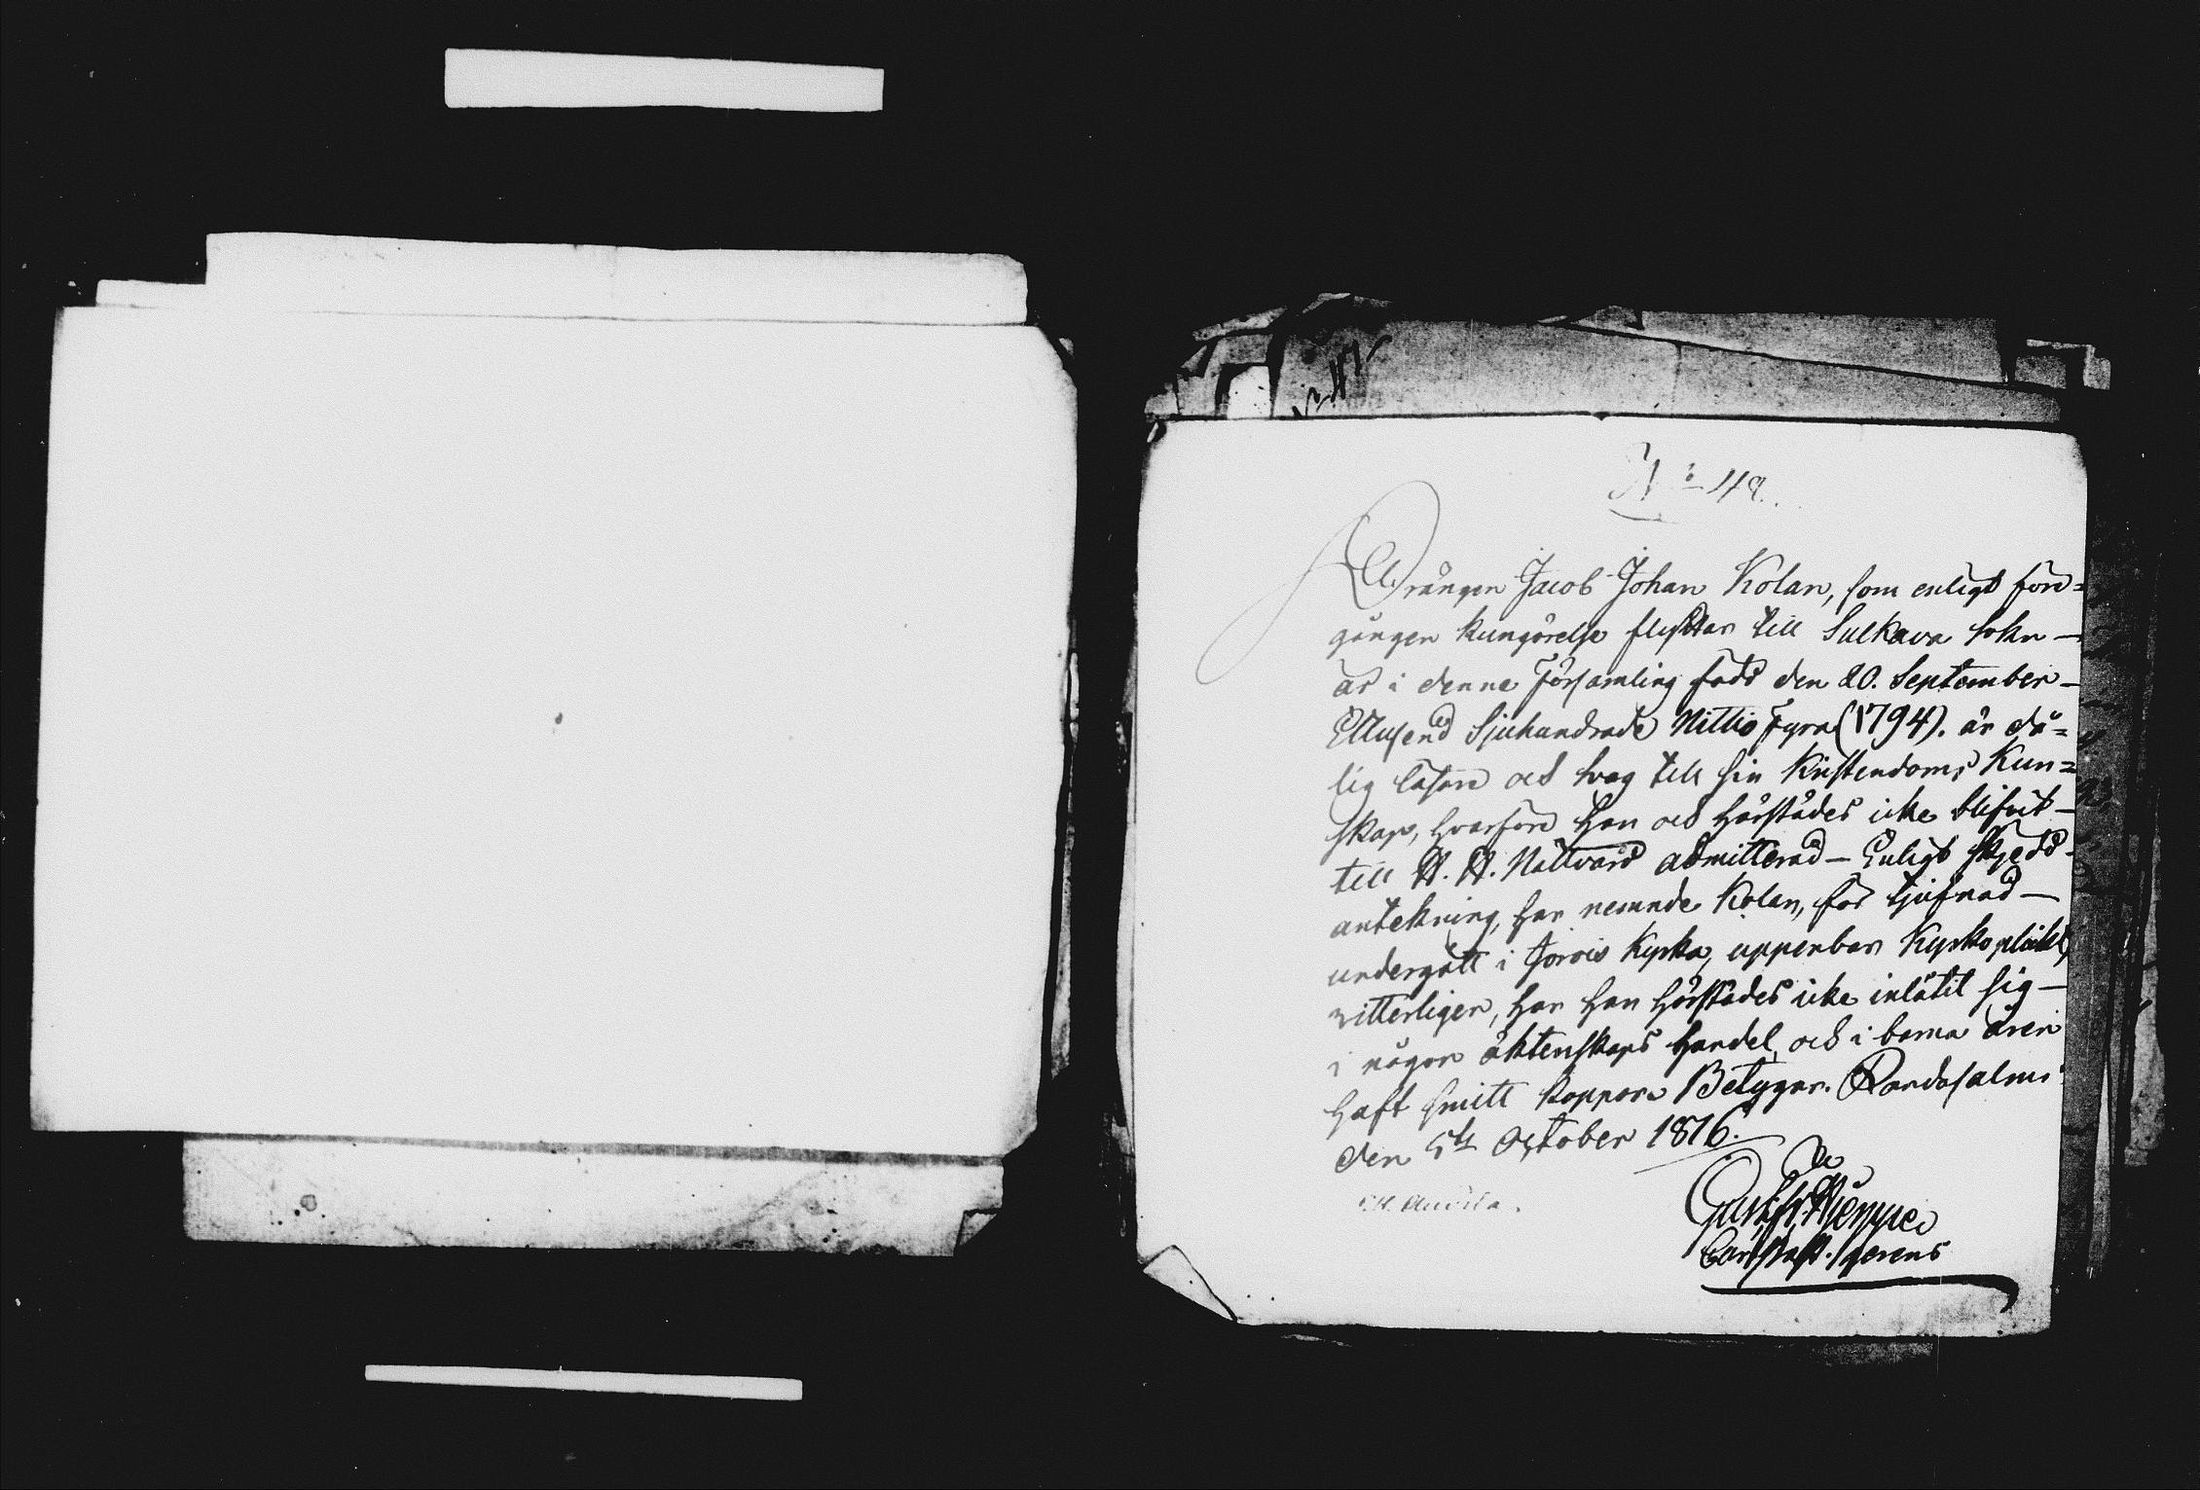 N 47
No 48.
Drängen Jacob Johan Kolan, som enligt före=
gången kungörelse flyttar till Sulkava sokn —
är i denne Församling född den 20. September —
Ettusend Sjuhundrade Nittio Fyra (1794). är då=
lig läsare och svag till sin Kristendoms Kun=
skap, hvarföre han och härstädes icke blifvit —
till H. H. Nattvard admitterad — Enligt skjedd
antekning, har nemnde Kolan, för tjufnad —
undergått i Jorois Kyrka, uppenbar Kyrkoplikt,
vitterligen, har han härstädes icke inlåtit sig —
i någon äktenskaps handel, och i barna åren
haft smitt koppor Betygar. Randasalmi
den 5te October 1816.
Gustaf